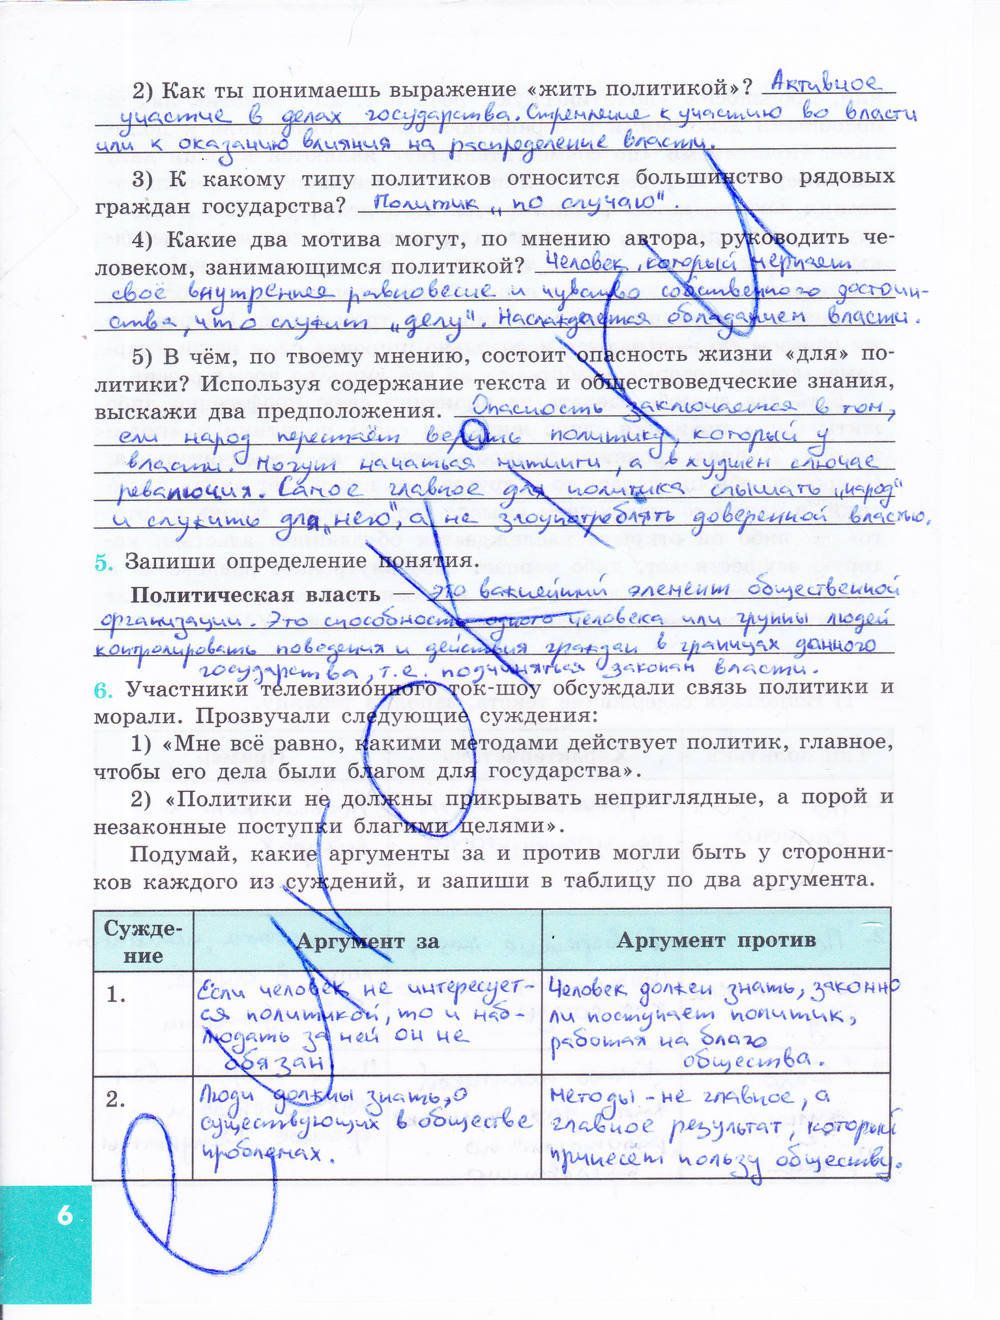 2) Как ты понимаешь выражение «жить политикой»? Активное
участие в делах государства. Стремление к участию во власти
или к оказанию влияния на распределение власти.
3) К какому типу политиков относится большинство рядовых
граждан государства? Политик „по случаю".
4) Какие два мотива могут, по мнению автора, руководить че-
ловеком, занимающимся политикой? Человек, который черпает
своё внутреннее равновесие и чувство собственного достоин-
ства, что служит „делу". Наслаждается обладанием власти.
5) В чём, по твоему мнению, состоит опасность жизни «для» по-
литики? Используя содержание текста и обществоведческие знания,
выскажи два предположения. Опасность заключается в том,
если народ перестаёт верить политику, который у
власти. Могут начаться митинги, а в худшем случае
революция. Самое главное для политика слышать „народ"
и служить для „него", а не злоупотреблять доверенной властью.
5. Запиши определение понятия.
Политическая власть — это важнейший элемент общественной
организации. Это способность одного человека или группы людей
контролировать поведения и действия граждан в границах данного
государства, т.е. подчиняться законам власти.
6. Участники телевизионного ток-шоу обсуждали связь политики и
морали. Прозвучали следующие суждения:
1) «Мне всё равно, какими методами действует политик, главное,
чтобы его дела были благом для государства».
2) «Политики не должны прикрывать неприглядные, а порой и
незаконные поступки благими целями».
Подумай, какие аргументы за и против могли быть у сторонни-
ков каждого из суждений, и запиши в таблицу по два аргумента.
Сужде-
ние
Аргумент за
Аргумент против
1.
Если человек не интересует-
ся политикой, то и наб-
людать за ней он не
обязан
Человек должен знать, законно
ли поступает политик,
работая на благо
общества.
2.
Люди должны знать, о
существующих в обществе
проблемах.
Методы - не главное, а
главное результат, который
принесёт пользу обществу.
6